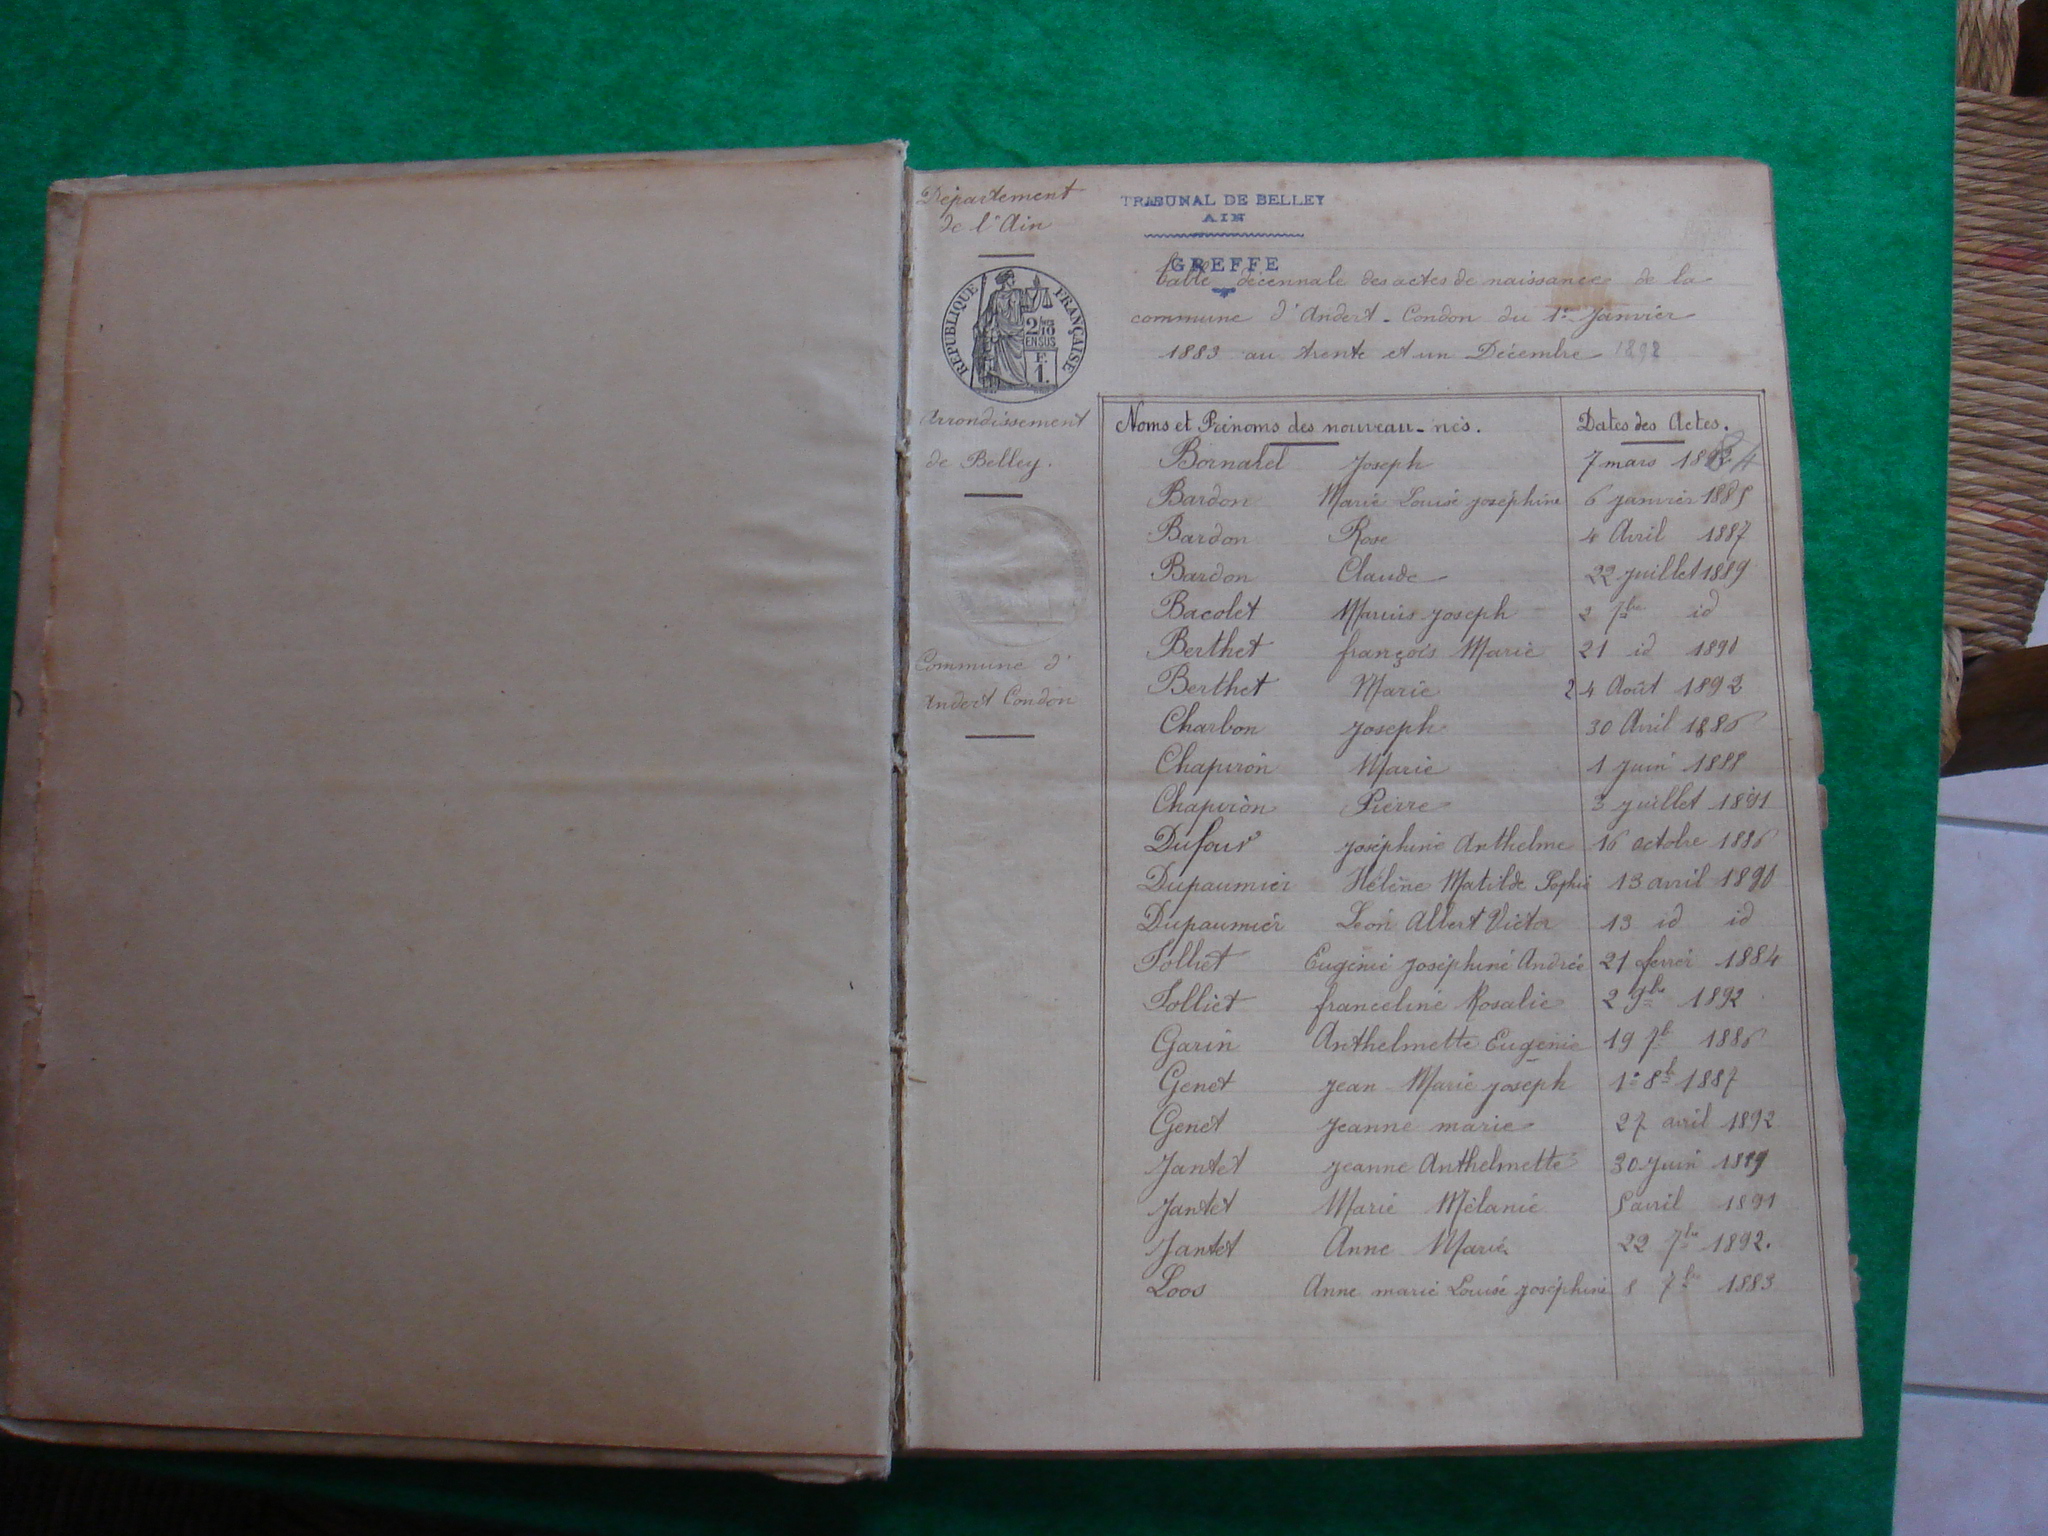 Département
de l'Ain
REPUBLIQUE FRANÇAISE
2/10
EN SUS
F.
1.
Arrondissement
de Belley.
Commune d'
Andert Condon
TRIBUNAL DE BELLEY
AIN
GREFFE
table décennale des actes de naissance de la
commune d'Andert-Condon du 1er Janvier
1883 au trente et un Décembre 1892
Noms et Prénoms des nouveau-nés. Dates des Actes.
Bornarel Joseph 7 mars
Bardon Marie Louise Joséphine 6 janvier 1885
Bardon Rose 4 Avril 1887
Bardon Claude 22 juillet 1889
Bacolet Marius Joseph 2 7bre id
Berthet françois Marie 21 id 1890
Berthet Marie 24 Août 1892
Charbon Joseph 30 Avril 1886
Chapiron Marie 1 Juin 1888
Chapiron Pierre 3 juillet 1891
Dufour Joséphine Anthelme 16 octobre 1886
Dupaumier Hélène Matilde Sophie 13 avril 1890
Dupaumier Léon Albert Victor 13 id id
Folliet Eugénie Joséphine Andrée 21 1884
Folliet franceline Rosalie 2 9bre 1892
Garin Anthelmette Eugenie 19 7b 1886
Genet Jean Marie Joseph 1er 8b 1887
Genet Jeanne marie 27 avril 1892
Jantet Jeanne Anthelmette 30 Juin 1889
Jantet Marie Mélanie 5 avril 1891
Jantet Anne Marie 22 7bre 1892.
Loos Anne marie Louise Joséphine 8 7bre 1883